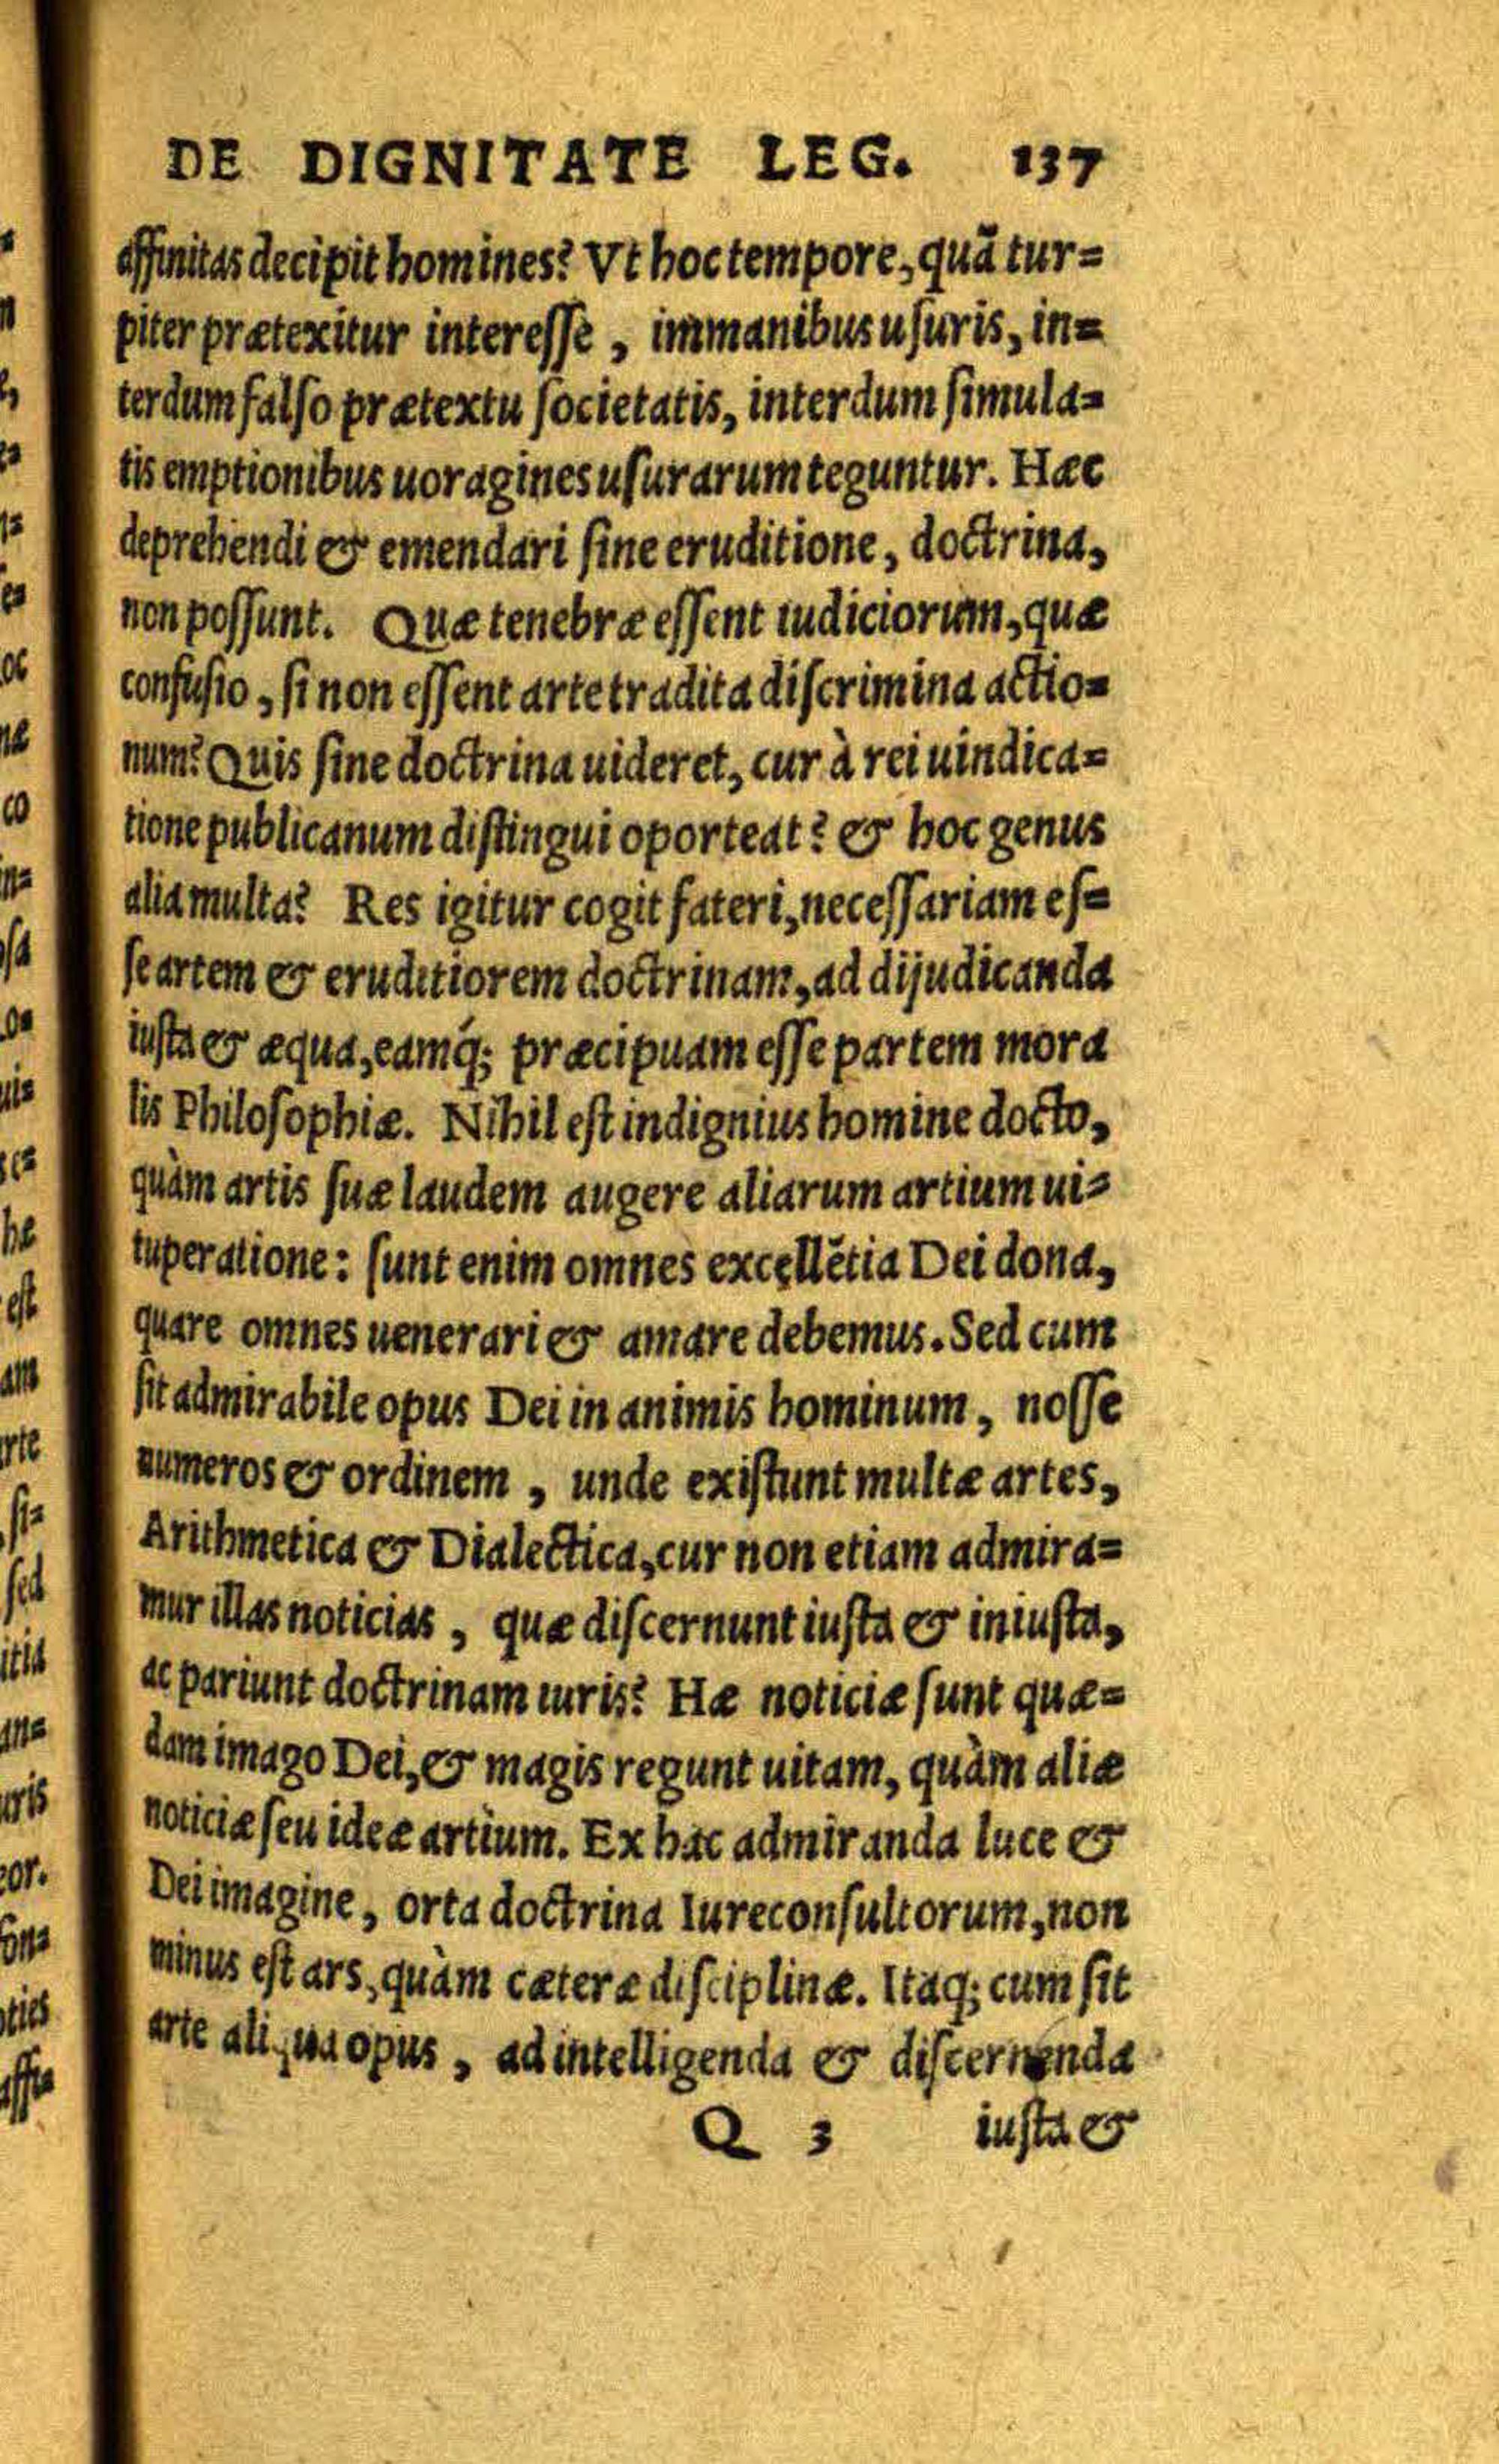 DE DIGNITATE LEG. 137
affinitas decipit homines? Vt hoc tempore, quā tur=
piter prætexitur interesse, immanibus usuris, in=
terdum falso prætextu societatis, interdum simula=
tis emptionibus uoragines usurarum teguntur. Hæc
deprehendi & emendari sine eruditione, doctrina,
non possunt. Quæ tenebræ essent iudiciorum, quæ
confusio, si non essent arte tradita discrimina actio=
num? Quis sine doctrina uideret, cur à rei uindica=
tione publicanum distingui oporteat? & hoc genus
alia multa? Res igitur cogit fateri, necessariam es=
se artem & eruditiorem doctrinam, ad dijudicanda
iusta & æqua, eamq́; præcipuam esse partem mora
lis Philosophiæ. Nihil est indignius homine docto,
quàm artis suæ laudem augere aliarum artium ui=
tuperatione: sunt enim omnes excellētia Dei dona,
quare omnes uenerari & amare debemus. Sed cum
sit admirabile opus Dei in animis hominum, nosse
numeros & ordinem, unde existunt multæ artes,
Arithmetica & Dialectica, cur non etiam admira=
mur illas noticias, quæ discernunt iusta & iniusta,
ac pariunt doctrinam iuris? Hæ noticiæ sunt quæ=
dam imago Dei, & magis regunt uitam, quàm aliæ
noticiæ seu ideæ artium. Ex hac admiranda luce &
Dei imagine, orta doctrina Iureconsultorum, non
minus est ars, quàm cæteræ disciplinæ. Itaq; cum sit
arte aliqua opus, ad intelligenda & discernenda
Q 3 iusta &